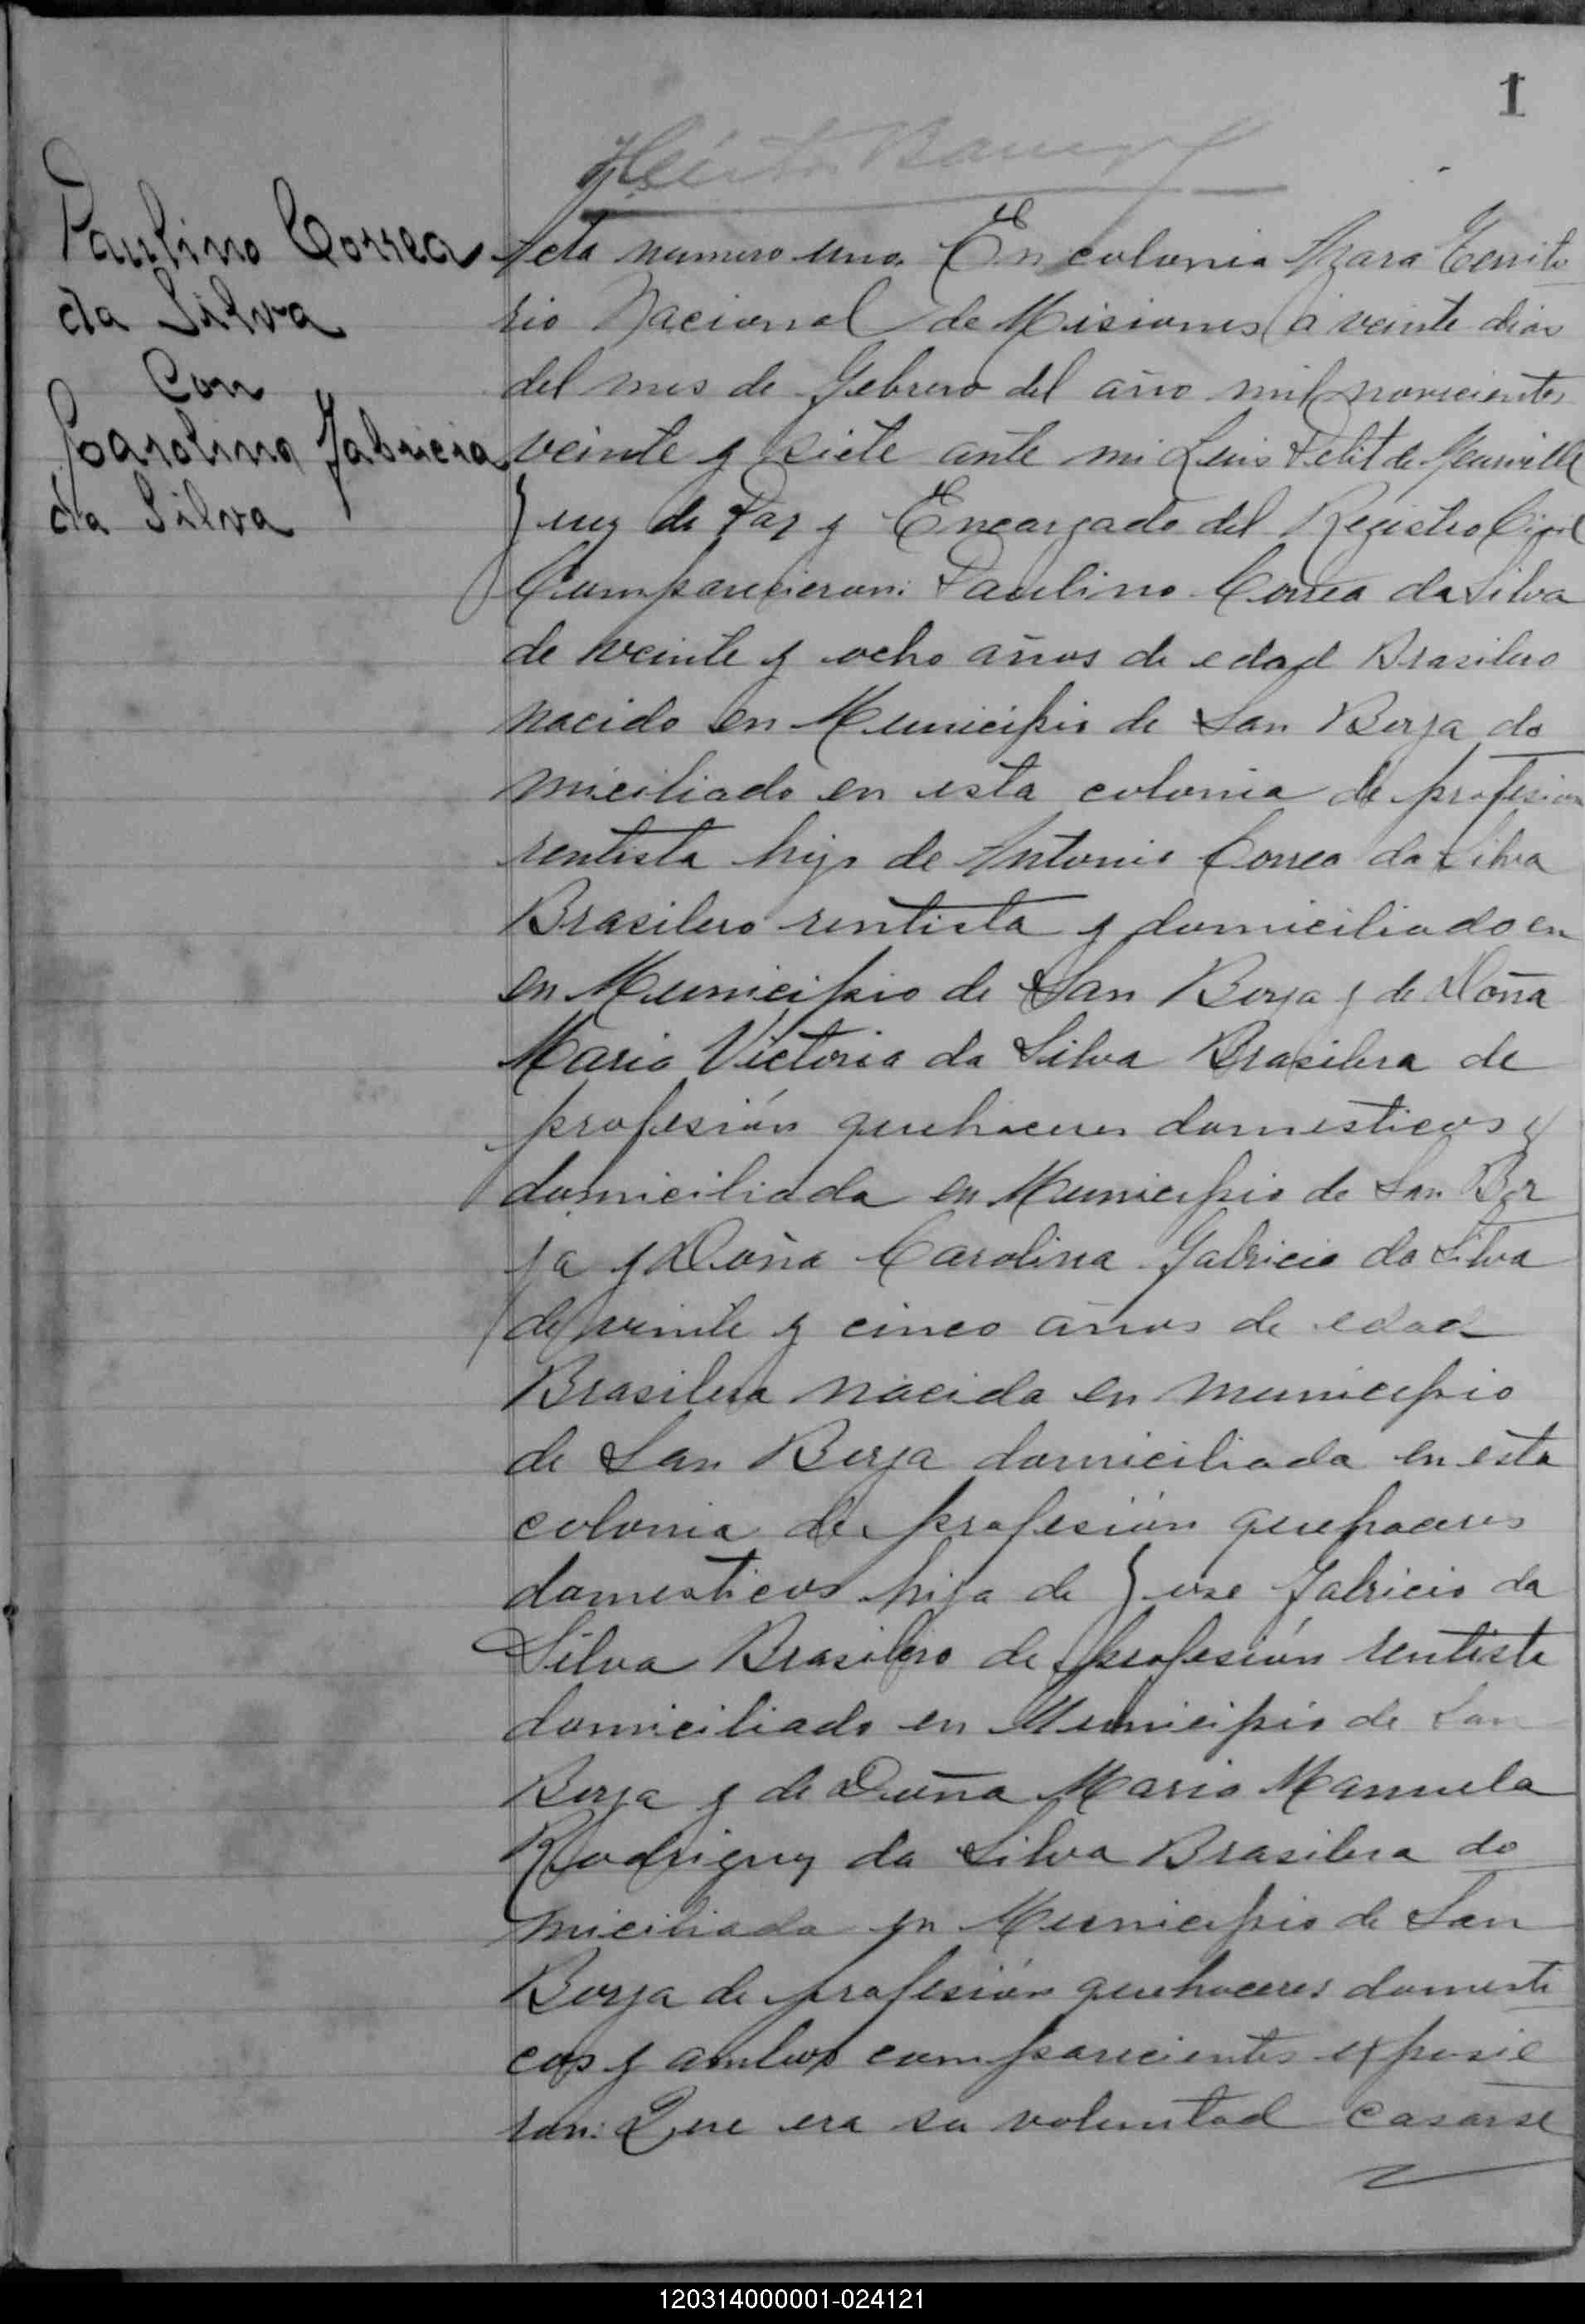 1
Paulino Correa
da Silva
Con
Carolina Fabricia
da Silva
Acta numero uno. En colonia Azara Territo
rio Nacional de Misiones á veinte dias
del mes de Febrero del año mil novecientos
veinte y siete ante mi Luis Petit de
Juez de Paz y Encargado del Registro Civil
Comparecieron: Paulino Correa da Silva
de veinte y ocho años de edad Brasilero
nacido en Municipio de San Borja do
miciliado en esta colonia de profesion
rentista hijo de Antonio Correa da Silva
Brasilero rentista y domiciliado en
en Municipio de San Borja y de Doña
Maria Victoria da Silva Brasilera de
profesión quehaceres domesticos y
domiciliada en Municipio de San Bor
ja y Doña Carolina Fabricia da Silva
de veinte y cinco años de edad
Brasilera nacida en municipio
de San Borja domiciliada en esta
colonia de profesión quehaceres
domesticos hija de Jose Fabricio da
Silva Brasilero de profesión rentista
domiciliado en Municipio de San
Borja y de Doña Maria Manuela
Rodriguez da Silva Brasilera do
miciliada en Municipio de San
Borja de profesión quehaceres domesti
cos y ambos comparecientes exposie
ron: Que era su voluntad casarse
120314000001-024121